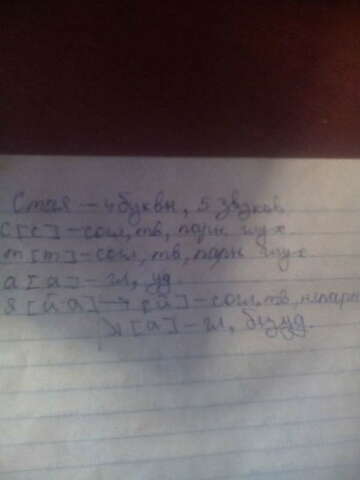 Стая — 4 буквы, 5 звуков
С [с] — согл, тв, парн, глух
т [т] — согл, тв, парн, глух
а [а] — гл, уд
я [й а] → [й] — согл, тв, непарн
↘ [а] — гл, безуд.